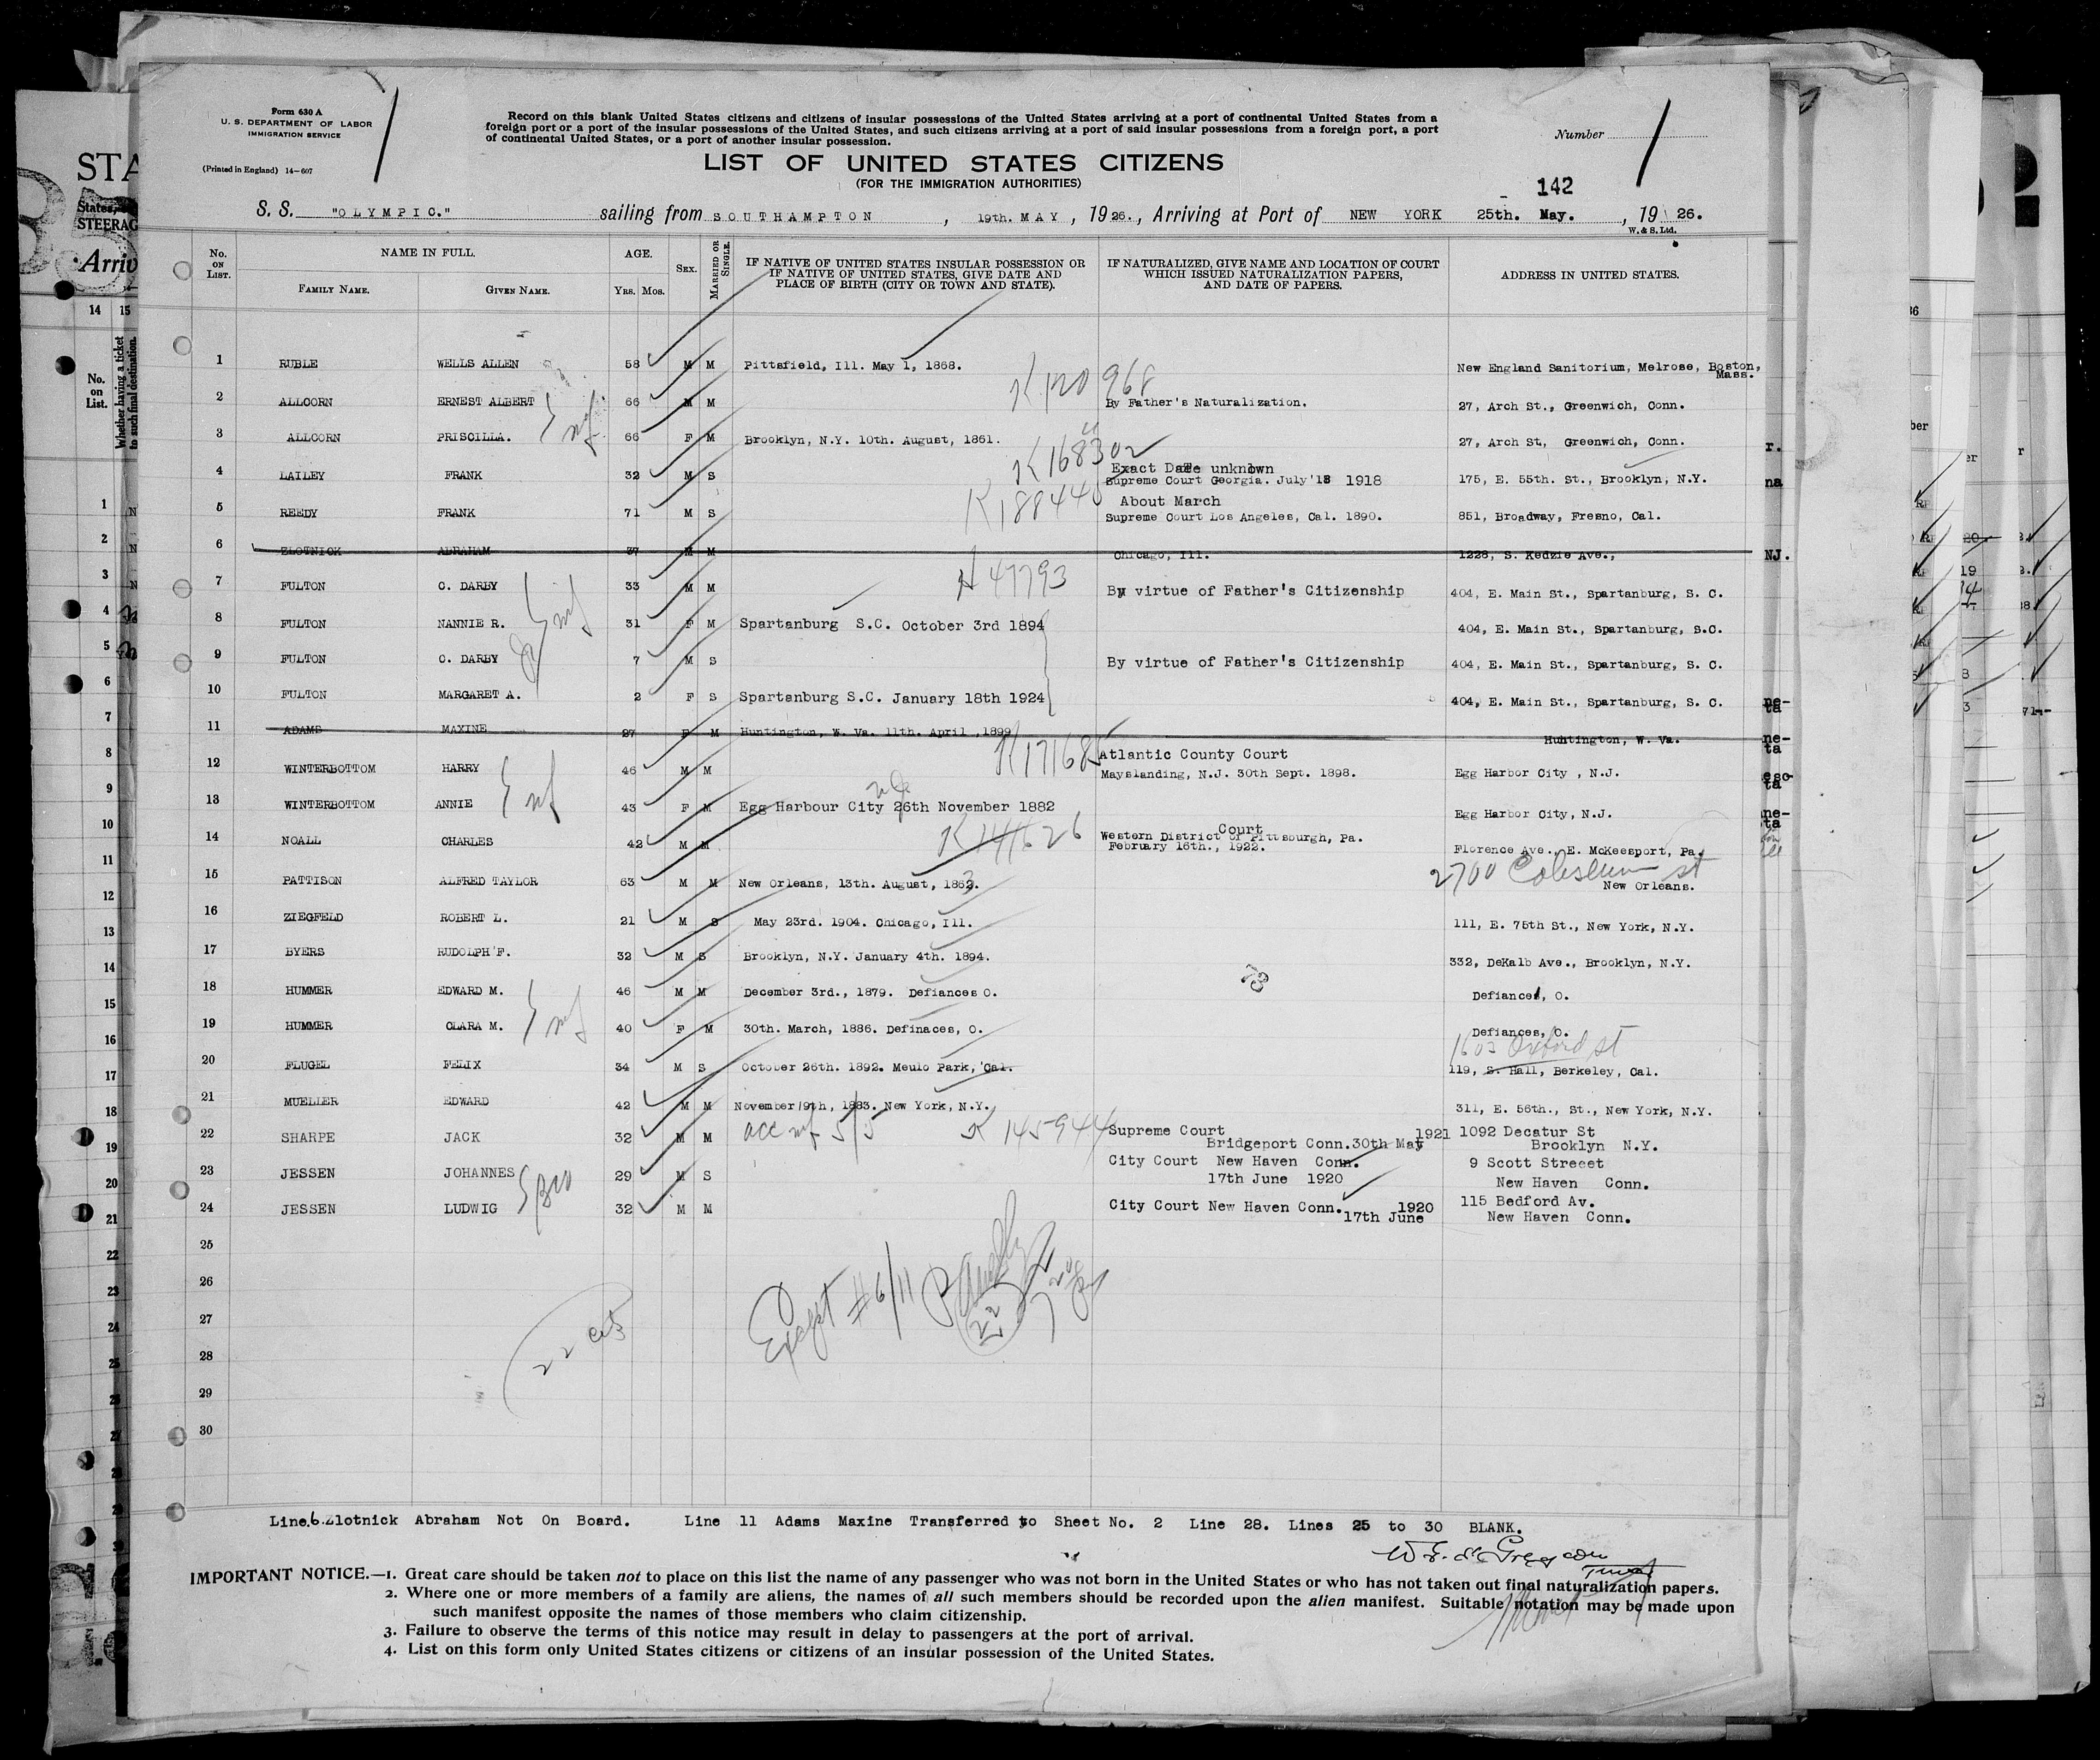 Form 630 A
U. S. DEPARTMENT OF LABOR
IMMIGRATION SERVICE
(Printed in England) 14—607
Record on this blank United States citizens and citizens of insular possessions of the United States arriving at a port of continental United States from a
foreign port or a port of the insular possessions of the United States, and such citizens arriving at a port of said insular possessions from a foreign port, a port
of continental United States, or a port of another insular possession.
Number
LIST OF UNITED STATES CITIZENS
(FOR THE IMMIGRATION AUTHORITIES)
142
S. S. "OLYMPIC." sailing from SOUTHAMPTON, 19th. MAY, 1926., Arriving at Port of NEW YORK 25th. May., 1926.
W. & S. Ltd.
No. ON LIST. NAME IN FULL. FAMILY NAME. GIVEN NAME. AGE. Yrs. Mos. SEX. MARRIED OR SINGLE. IF NATIVE OF UNITED STATES INSULAR POSSESSION OR IF NATIVE OF UNITED STATES, GIVE DATE AND PLACE OF BIRTH (CITY OR TOWN AND STATE). IF NATURALIZED, GIVE NAME AND LOCATION OF COURT WHICH ISSUED NATURALIZATION PAPERS, AND DATE OF PAPERS. ADDRESS IN UNITED STATES.
1 RUBLE WELLS ALLEN 58 M M Pittsfield, Ill. May 1, 1868. New England Sanitorium, Melrose, Boston, Mass.
K 120968
2 ALLCORN ERNEST ALBERT 66 M M By Father's Naturalization. 27, Arch St., Greenwich, Conn.
3 ALLCORN PRISCILLA. 66 F M Brooklyn, N.Y. 10th. August, 1861. 27, Arch St, Greenwich, Conn.
K 168302
4 LAILEY FRANK 32 M S Exact Date unknown Supreme Court Georgia. July'18 1918 175, E. 55th. St., Brooklyn, N.Y.
5 REEDY FRANK 71 M S About March Supreme Court Los Angeles, Cal. 1890. 851, Broadway, Fresno, Cal.
6 ZLOTNICK ABRAHAM 37 M M Chicago, Ill. 1228, S. Kedzie Ave.,
H 47793
7 FULTON C. DARBY 33 M M By virtue of Father's Citizenship 404, E. Main St., Spartanburg, S. C.
8 FULTON NANNIE R. 31 F M Spartanburg S.C. October 3rd 1894 404, E. Main St., Spartanburg, S.C.
9 FULTON C. DARBY 7 M S By virtue of Father's Citizenship 404, E. Main St., Spartanburg, S. C.
10 FULTON MARGARET A. 2 F S Spartanburg S.C. January 18th 1924 404, E. Main St., Spartanburg, S. C.
11 ADAMS MAXINE 27 F M Huntington, W. Va. 11th. April ,1899 Huntington, W. Va.
K171685
12 WINTERBOTTOM HARRY 46 M M Atlantic County Court Mayslanding, N.J. 30th Sept. 1898. Egg Harbor City , N.J.
13 WINTERBOTTOM ANNIE 43 F M Egg Harbour City 26th November 1882 Egg Harbor City, N.J.
14 NOALL CHARLES 42 M M Court Western District of Pittsburgh, Pa. February 16th., 1922. Florence Ave., E. McKeesport, Pa.
2700 Coliseum st
15 PATTISON ALFRED TAYLOR 63 M M New Orleans, 13th. August, 1863. New Orleans.
16 ZIEGFELD ROBERT L. 21 M S May 23rd. 1904. Chicago, Ill. 111, E. 75th St., New York, N.Y.
17 BYERS RUDOLPH F. 32 M S Brooklyn, N.Y. January 4th. 1894. 332, DeKalb Ave., Brooklyn, N.Y.
18 HUMMER EDWARD M. 46 M M December 3rd., 1879. Defiances O. Defiances, O.
19 HUMMER CLARA M. 40 F M 30th. March, 1886. Definaces, O. Defiances, O.
1603 Oxford st
20 FLUGEL FELIX 34 M S October 26th. 1892. Meulo Park, Cal. 119, S. Hall, Berkeley, Cal.
21 MUELLER EDWARD 42 M M November 9th, 1883. New York, N.Y. 311, E. 56th., St., New York, N.Y.
K 145944
22 SHARPE JACK 32 M M Supreme Court Bridgeport Conn. 30th May 1921 1092 Decatur St Brooklyn N.Y.
23 JESSEN JOHANNES 29 M S City Court New Haven Conn. 17th June 1920 9 Scott Streeet New Haven Conn.
24 JESSEN LUDWIG 32 M M City Court New Haven Conn. 17th June 1920 115 Bedford Av. New Haven Conn.
25
26
27
28
29
30
Except #6/11
22 cits
Line.6.Zlotnick Abraham Not On Board. Line 11 Adams Maxine Transferred to Sheet No. 2 Line 28. Lines 25 to 30 BLANK.
IMPORTANT NOTICE.—1. Great care should be taken not to place on this list the name of any passenger who was not born in the United States or who has not taken out final naturalization papers.
2. Where one or more members of a family are aliens, the names of all such members should be recorded upon the alien manifest. Suitable notation may be made upon
such manifest opposite the names of those members who claim citizenship.
3. Failure to observe the terms of this notice may result in delay to passengers at the port of arrival.
4. List on this form only United States citizens or citizens of an insular possession of the United States.